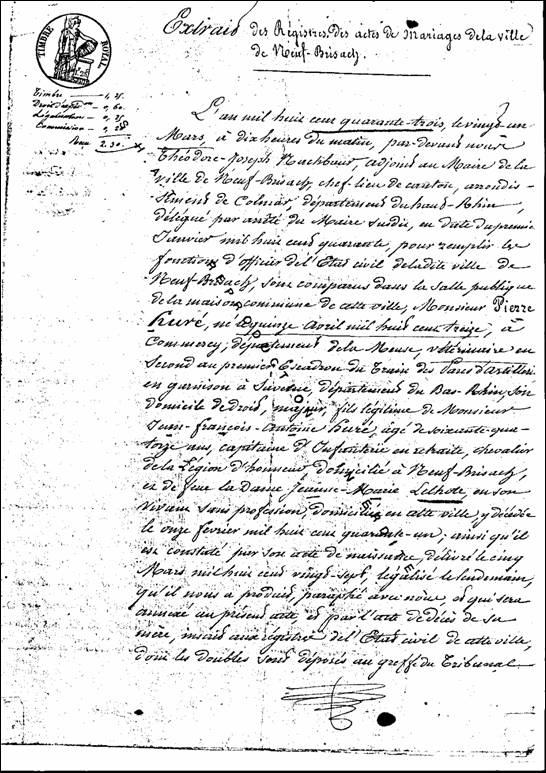 Extrait des Régistres des actes de Mariages de la ville
de Neuf-Brisach.
TIMBRE ROYAL
Timbre 1,25
0,60
Légalisation 0,25
Commission
2.30
L'an mil huit cent quarante-trois, le vingt un
Mars, à dix heures du matin, par-devant nous
Théodore-Joseph Nachbaur, adjoint au Maire de la
ville de Neuf-Brisach, chef-lieu de canton, arrondis-
sement de Colmar, département du haut-Rhin,
délégué par arrêté du Maire susdit, en date du premier
Janvier mil huit cent quarante, pour remplir les
fonctions d'officier de l'Etat civil de ladite ville de
Neuf-Brisach, sont comparus dans la salle publique
de la maison commune de cette ville, Monsieur Pierre
Huré, né le quinze avril mil huit cent treize, à
Commercy, département de la Meuse, vétérinaire en
second au premier Escadron du Train des Parcs d'artillerie
en garnison à, département du Bas-Rhin, son
domicile de droit, majeur, fils légitime de Monsieur
Jean-françois-Antoine Huré, âgé de soixante-qua-
torze ans, capitaine d'Infanterie en retraite, chevalier
de la Légion d'honneur, domicilié à Neuf-Brisach,
et de feue la Dame Jeanne-Marie Lelhote, en son
vivant sans profession, domiciliée en cette ville, y décédée
le onze février mil huit cent quarante-un; ainsi qu'il
est constaté par son acte de naissance, délivré le cinq
Mars mil huit cent vingt-sept, légalisé le lendemain,
qu'il nous a produit, paraphé avec nous, et qui sera
annexé au présent acte, et par l'acte de décès de sa
mère, inscrit aux régistres de l'Etat civil de cette ville,
dont les doubles sont déposés au greffe du Tribunal